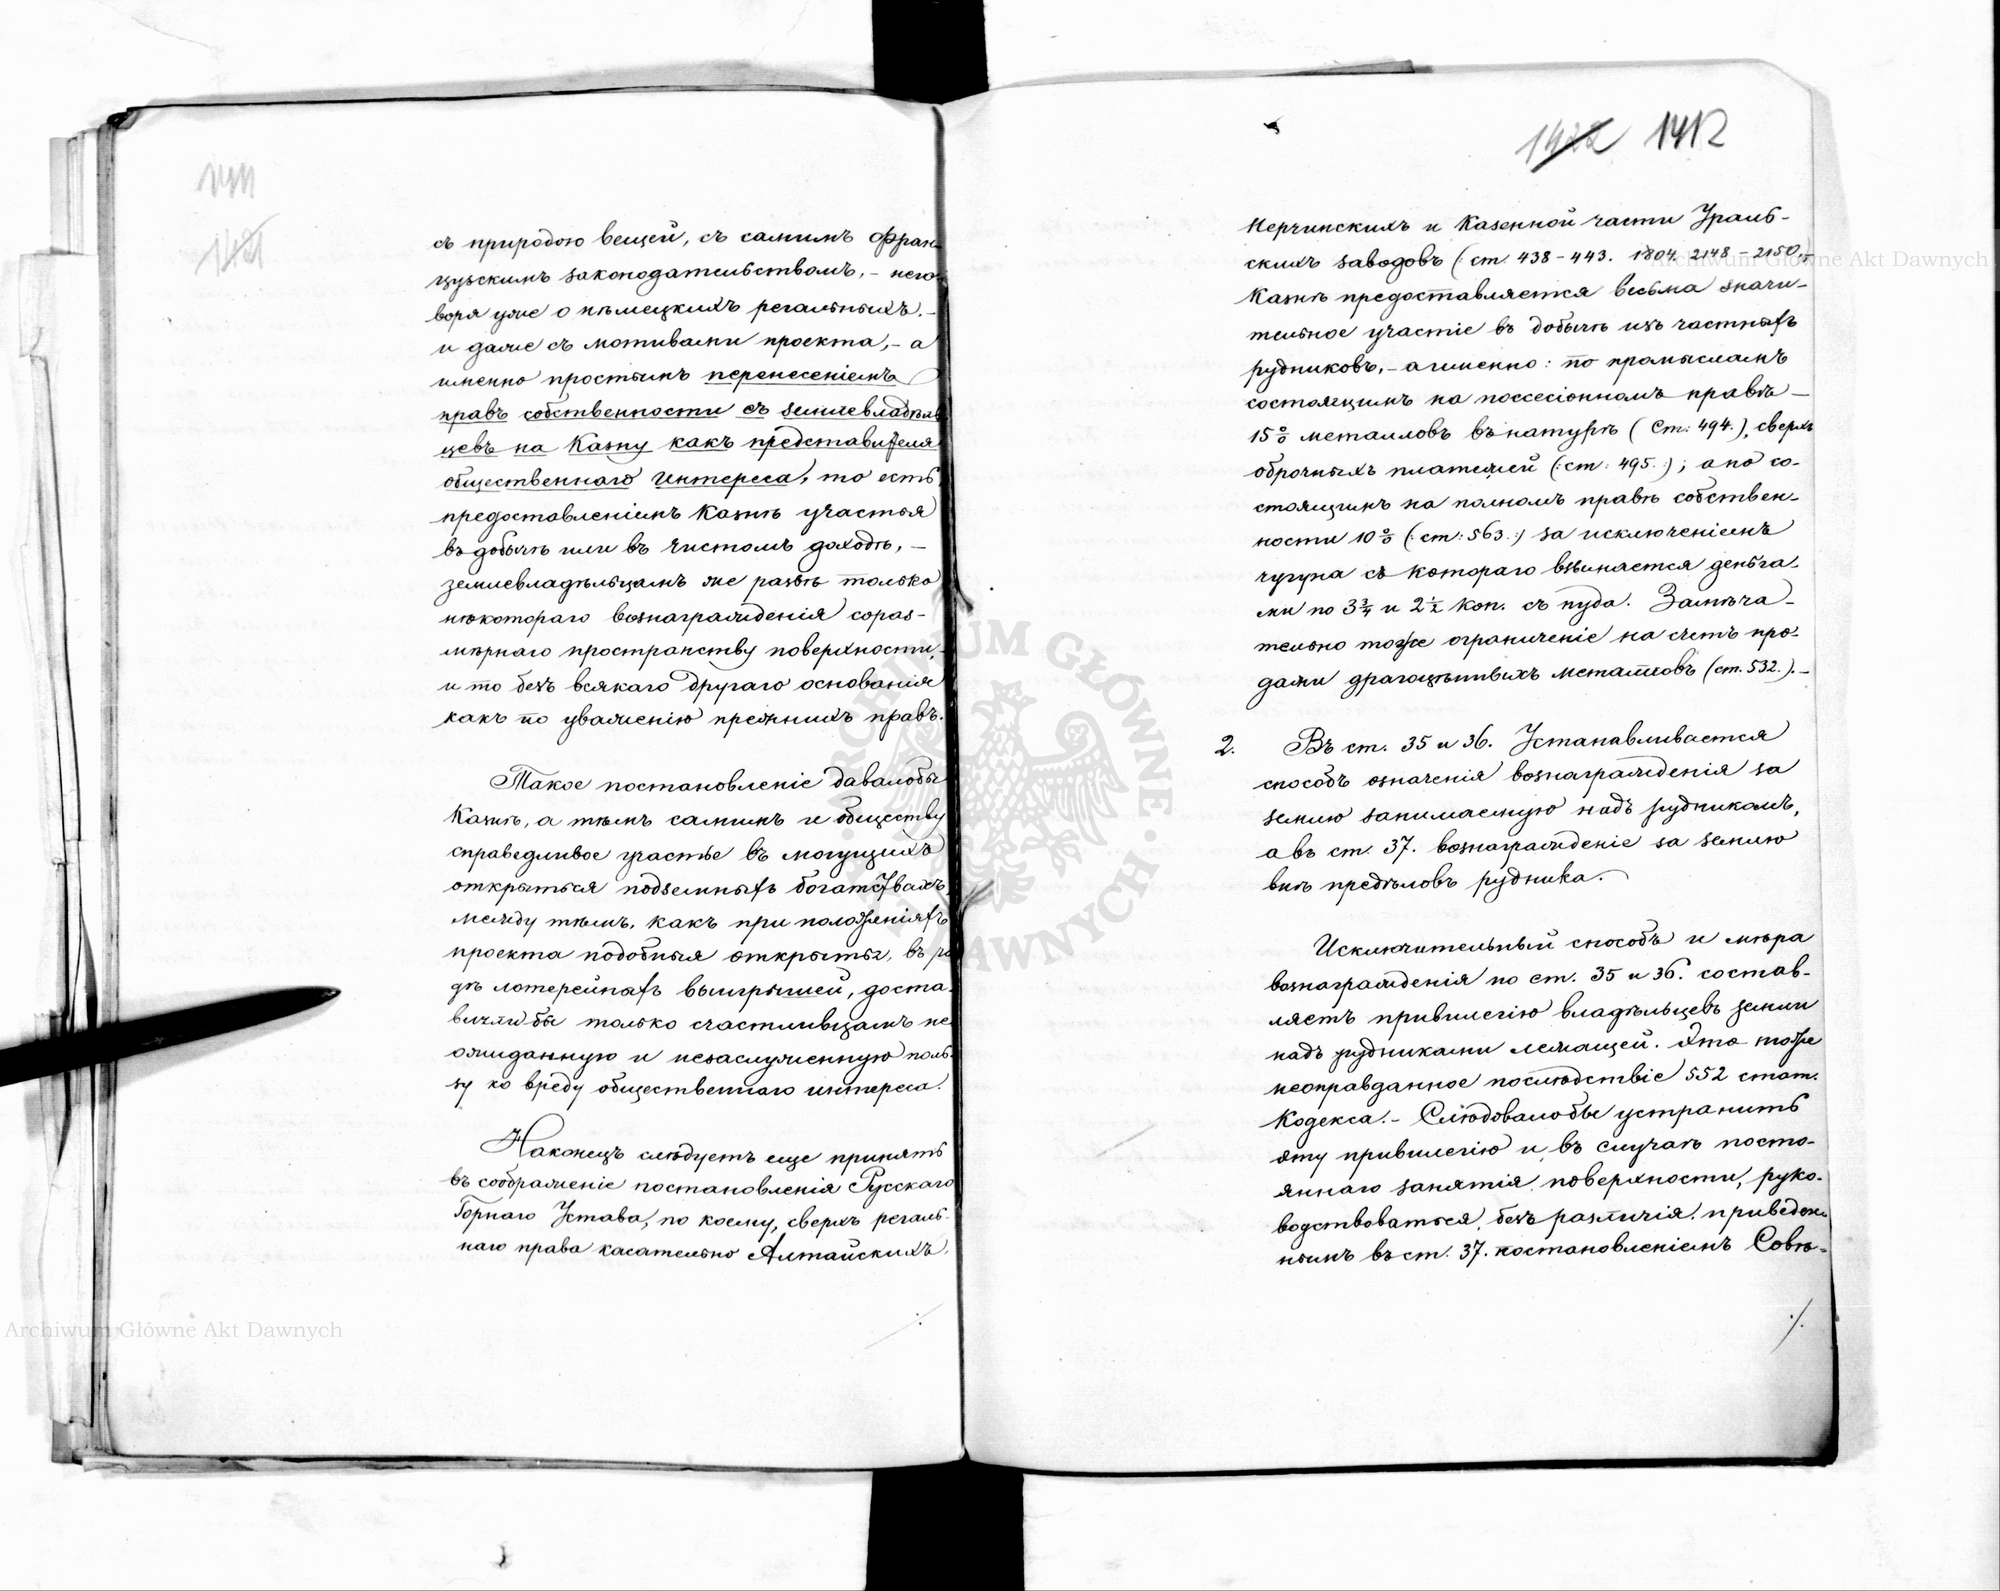 1411
1421
съ природою вещей, съ самимъ Фран-
цузскимъ законодательствомъ, – него-
воря уже о нѣмецкихъ регальныхъ. –
и даже съ мотивами проекта, – а
именно простымъ перенесеніемъ
правъ собственности съ землевладѣль
цевъ на Казну какъ представителя
общественнаго интереса, то есть
предоставленіемъ Казнѣ участья
въ добычѣ или въ чистомъ доходѣ, –
землевладѣльцамъ же развѣ только
нѣкотораго вознагражденія сораз-
мѣрнаго пространству поверхности,
и то безъ всякаго другаго основанія
какъ по уваженію прежнихъ правъ.
Такое постановленіе давалобы
Казнѣ, а тѣмъ самимъ и обществу
справедливое участье въ могущихъ
открыться подземныхъ богатствахъ,
между тѣмъ, какъ при положеніяхъ
проекта подобныя открытьи, въ ро
дѣ лотерейныхъ выигрышей, доста-
вилибы только счастливцамъ не
ожиданную и незаслуженную поль-
зу ко вреду общественнаго интереса.
Наконецъ слѣдуетъ еще принять
въ соображеніе постановленія Русскаго
Горнаго Устава, по коему, сверхъ регаль-
наго права касательно Алтайскихъ,
1422 1412
Нерчинскихъ и Казенной части Ураль-
скихъ заводовъ (: ст. 438 – 443. 1804. 2148 – 2150,
Казнѣ предоставляется весьма значи-
тельное участіе въ добычѣ изъ частныхъ
рудниковъ, – а именно: по промысламъ
состоящимъ на поссесіонномъ правѣ –
15% металловъ въ натурѣ (Ст: 494.), сверхъ
оброчныхъ платежей (: ст: 495. :); а по со-
стоящимъ на полномъ правѣ собствен-
ности 10% (: ст: 563. :) за исключеніемъ
чугуна съ котораго взымается деньга-
ми по 3¾ и 2½ коп. съ пуда. Замѣча-
тельно тоже ограниченіе на счетъ про-
дажи драгоцѣнныхъ металловъ (ст. 532.). –
2. Въ ст. 35 и 36. Устанавливается
способъ означенія вознагражденія за
землю занимаемую надъ рудникомъ,
а въ ст. 37. вознагражденіе за землю
внѣ предѣловъ рудника. –
Исключительный способъ и мѣра
вознагражденія по ст. 35 и 36. состав-
ляетъ привилегію владѣльцевъ земли
надъ рудниками лежащей. Это тоже
неоправданное послѣдствіе 552 стат.
Кодекса. – Слѣдовалобы устранить
эту привилегію и, въ случаѣ посто-
яннаго занятія поверхности, руко-
водствоваться, безъ различія, приведен-
нымъ въ ст. 37. постановленіемъ Совѣ-